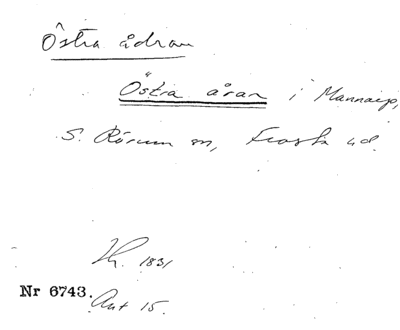 Östra ådran
Östra åran i Mannarp,
S. Rörum sn, Frosta hd.
Lh. 1831
Nr 6743.
Akt 15.